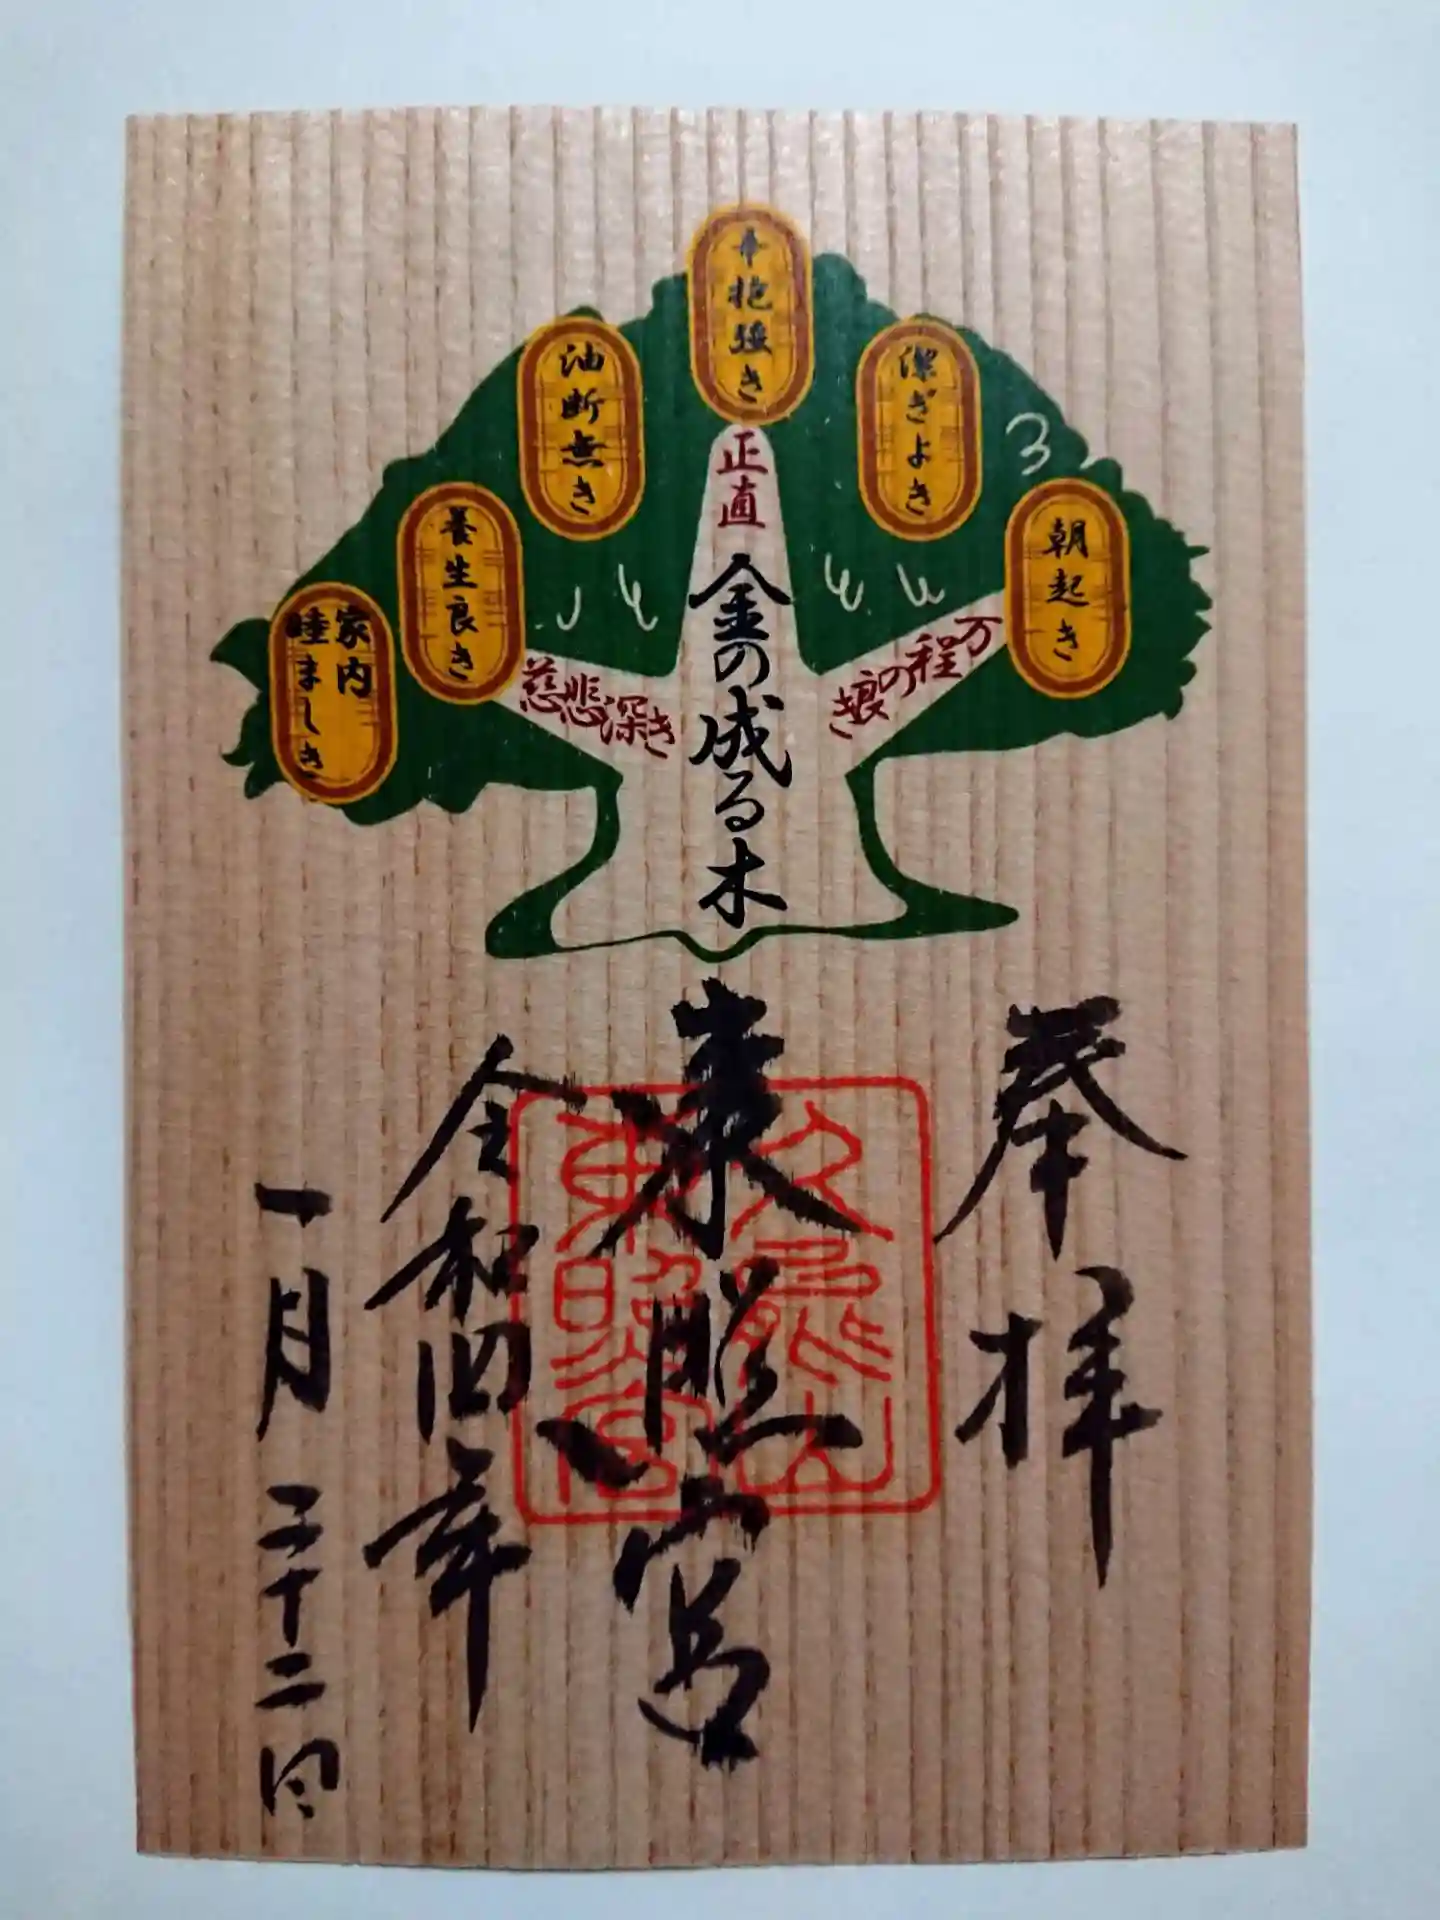 朝起き
潔ぎよき
辛抱強き
油断無き
養生良き
家内
睦ましき
正直
万程の良き
慈悲深き
金の成る木
奉拝
東照宮
久能山
東照宮
令和四年
一月二十二日